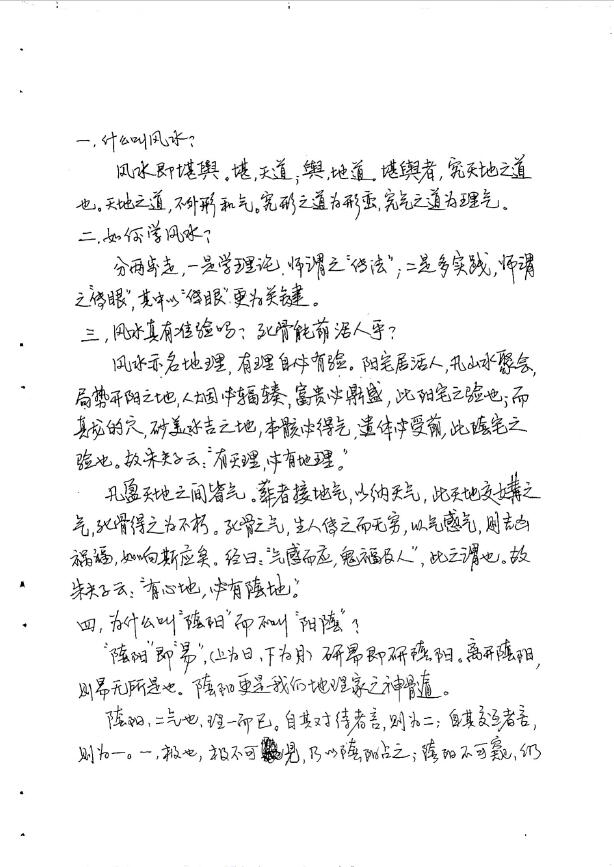 一.什么叫风水？
风水即堪舆。堪,天道；舆,地道。堪舆者,究天地之道
也。天地之道,不外形和气。究形之道为形峦,究气之道为理气。
二.如何学风水？
分两步走,一是学理论,师谓之“传法”；二是多实践,师谓
之“传眼”,其中以“传眼”更为关键。
三,风水真有准验吗？死骨能荫活人乎？
风水亦名地理,有理自必有验。阳宅居活人,凡山水聚会,
局势开阳之地,人烟必辐辏,富贵必鼎盛,此阳宅之验也；而
真龙的穴,砂美水吉之地,本骸必得气,遗体必受荫,此陰宅之
验也。故朱夫子云：“有天理,必有地理。”
凡盈天地之间皆气。葬者接地气,以纳天气,此天地交媾之
气,死骨得之为不朽。死骨之气,生人传之而无穷,以气感气,则吉凶
祸福,如响斯应矣。经曰：“气感而应,鬼福及人”,此之谓也。故
朱夫子云：“有心地,必有陰地。”
四,为什么叫“陰阳”而不叫“阳陰”？
“陰阳”即“易”,(上为日,下为月)研易即研陰阳。离开陰阳,
则易无所是也。陰阳更是我们地理家之神骨道。
陰阳,二气也,理一而已。自其对待者言,则为二；自其交互者言,
则为一。一,极也,极不可見,乃以陰阳占之；陰阳不可窥,仍